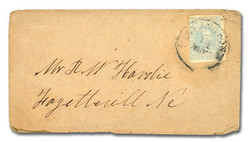 Mr P. W. Hardie
Fayetteville Nc